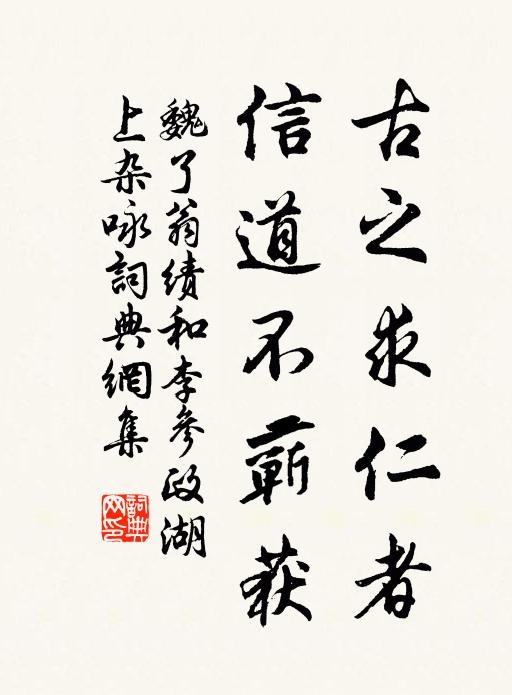 古之求仁者
信道不蕲获
魏了翁績和李參政湖
上杂咏詞典網集
詞典網印